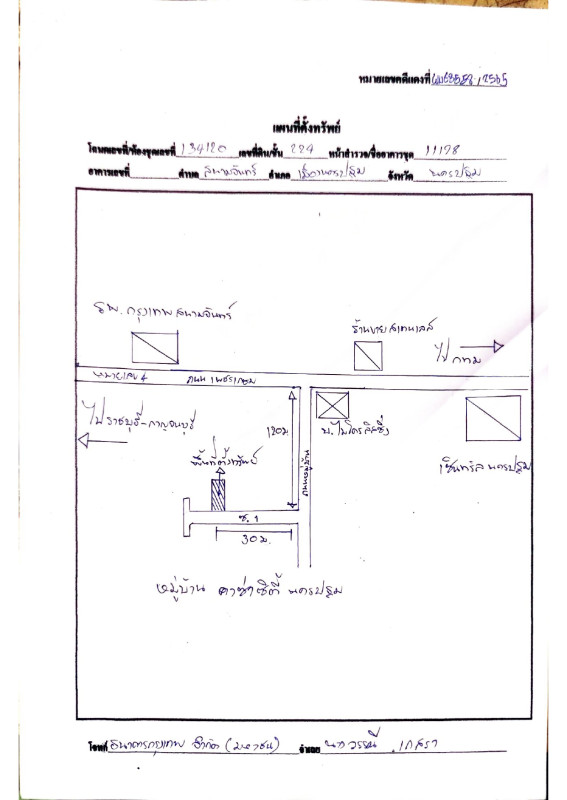 หมายเลขคดีแดงที่ /2565
แผนที่ตั้งทรัพย์
โฉนดเลขที่/ห้องชุดเลขที่ 134120 เลขที่ดิน/ชั้น 224 หน้าสำรวจ/ชื่ออาคารชุด 11178
อาคารเลขที่ ตำบล สนามจันทร์ อำเภอ เมืองนครปฐม จังหวัด นครปฐม
รพ. กรุงเทพ สนามจันทร์
ร้านขาย สแตนเลส
ไป กทม
หมายเลข 4 ถนน เพชรเกษม
ไปราชบุรี-กาญจนบุรี
120ม
ถนนหมู่บ้าน
บ. ไมโครลิสซิ่ง
เซ็นทรัล นครปฐม
พื้นที่ตั้งทรัพย์
ซ. 1
30 ม.
หมู่บ้าน คาซ่าซิตี้ นครปฐม
โจทก์ ธนาคารกรุงเทพ จำกัด (มหาชน) จำเลย เกสรา